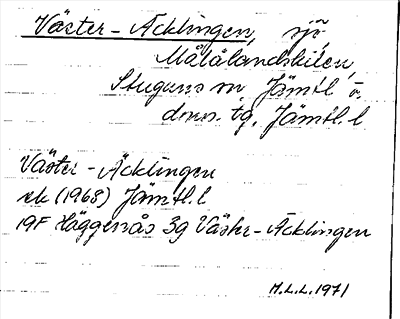 Väster-Äcklingen, sjö,
Målålandskilen,
Stuguns sn Jämtl. ö.
doms. tg, Jämtl. l
Väster-Äcklingen
ek (1968) Jämtl. l
19F Häggenås 3g Väster-Äcklingen
M.L.L. 1971